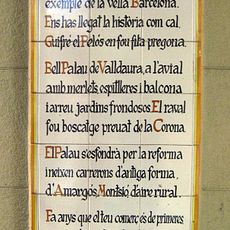 exemple de la vella Barcelona.
Ens has llegat la història com cal.
Guifré el Pelós en fou fita pregona.
Bell Palau de Valldaura, a l'avial
amb merlets, espitlleres i balcona
i arreu jardins frondosos. El raval
fou boscatge preuat de la Corona
El Palau s'esfondrà per la reforma
i neixen carrerons d'antiga forma
d'Amargós, Montsió, d'aire rural.
Fa anys que el teu comerç és de primeres